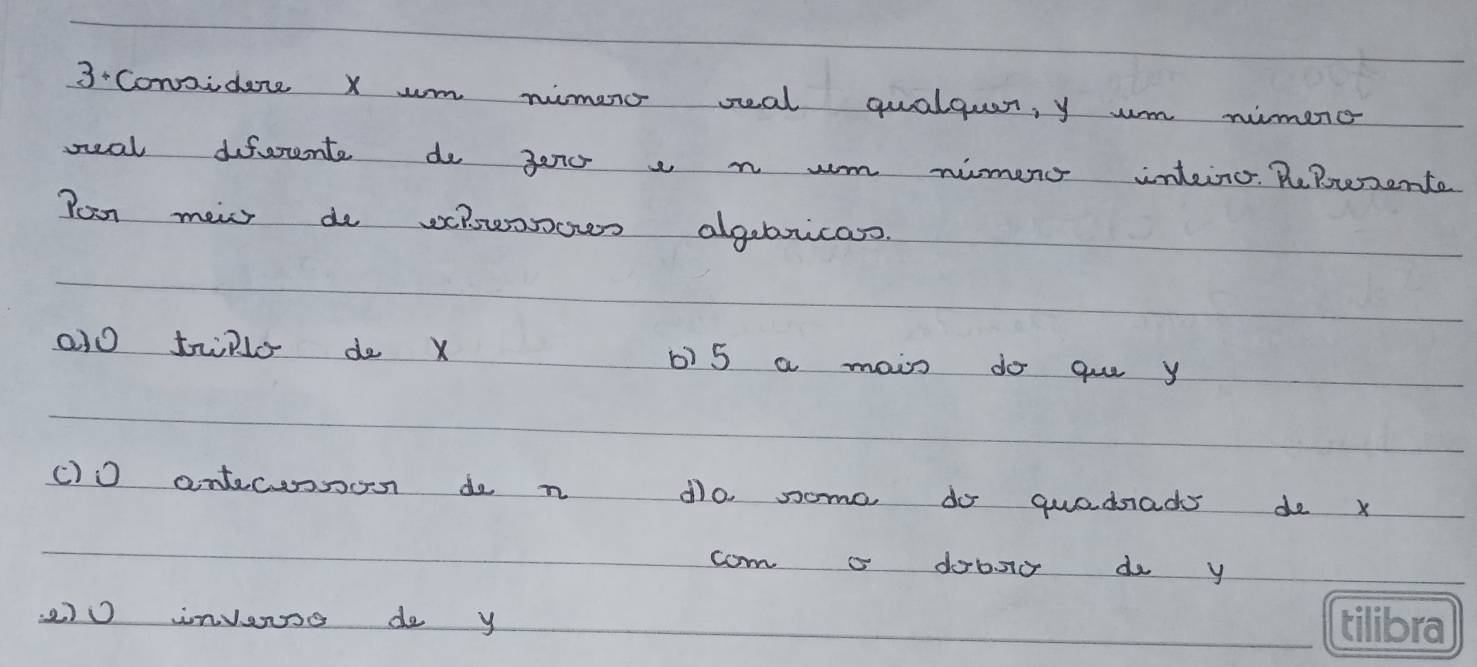 3. Considere x um número real qualquer, y um número
real diferente de zero e n um número inteiro. RePresente
Por meio de exPressões algebricas.
a) O triPlo de x b) 5 a mais do que y
c) O antecessor de n d) a soma do quadrado de x
com o dobro de y
e) O inverso de y
tilibra